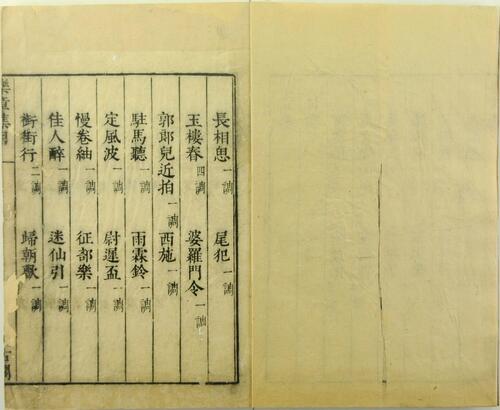 長相思一調 尾犯一調
玉樓春四調 婆羅門令一調
郭郎兒近拍一調 西施一調
駐馬聽一調 雨霖鈴一調
定風波一調 尉遲盃一調
慢卷紬一調 征部樂一調
佳人醉一調 迷仙引一調
御街行二調 歸朝歡一調